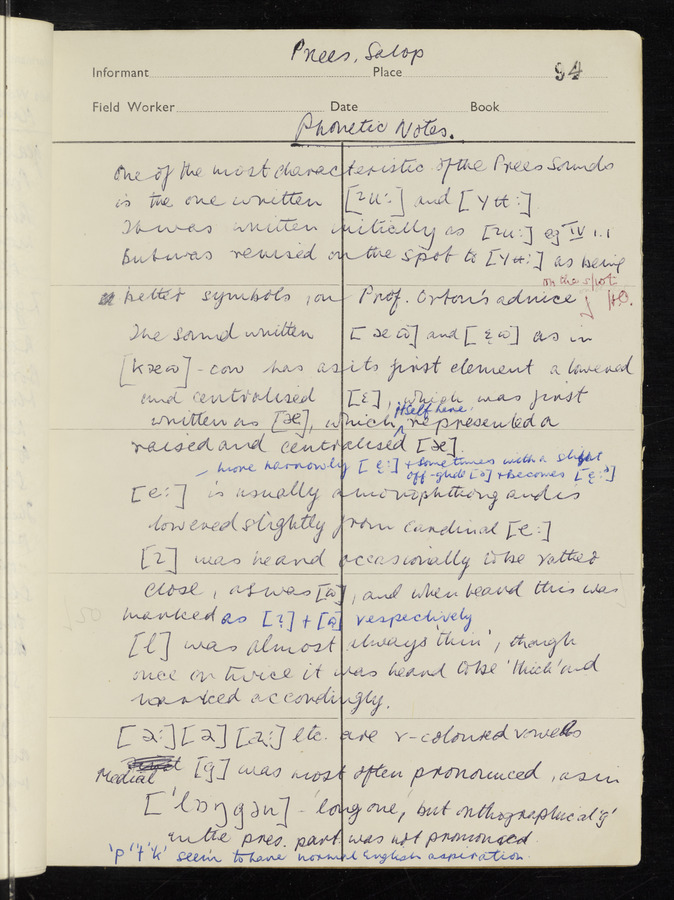 Prees, Salop
Informant Place 94
Field Worker Date Book
Phonetic Notes.
One of the most characteristic of the Prees Sounds
is the one written [ɪu:] and [ʏʉ:]
It was written initially as [ɪu:] eg IV 1.1
But was revised on the spot to [ʏʉ:] as being
on the spot
better symbols, on Prof. Orton's advice HO.
The sound written [æω] and [ɛ̣ω] as in
[kæω] - cow has as its first element a lowered
and centralised [ɛ], which was first
itself here
written as [æ], which represented a
raised and centralised [æ]
more narrowly [ẹ:] + sometimes with a slight
off-glide [ə] + becomes [ẹ:ᵊ]
[e:] is usually a monophthong and is
lowered slightly from cardinal [e:]
[ɪ] was heard occasionally to be rather
close, as was [ω], and when heard this was
marked as [ɪ̣] + [ω̣] respectively
[l] was almost always 'thin', though
once or twice it was heard to be 'thick' and
marked accordingly.
[ə:] [ə] [a:] etc. are r-coloured vowels
Medial [g] was most often pronounced, as in
['lɒŋgən] - 'long one', but orthographical 'g'
in the pres. part was not pronounced.
'p' 't' 'k' seem to have normal English aspiration.